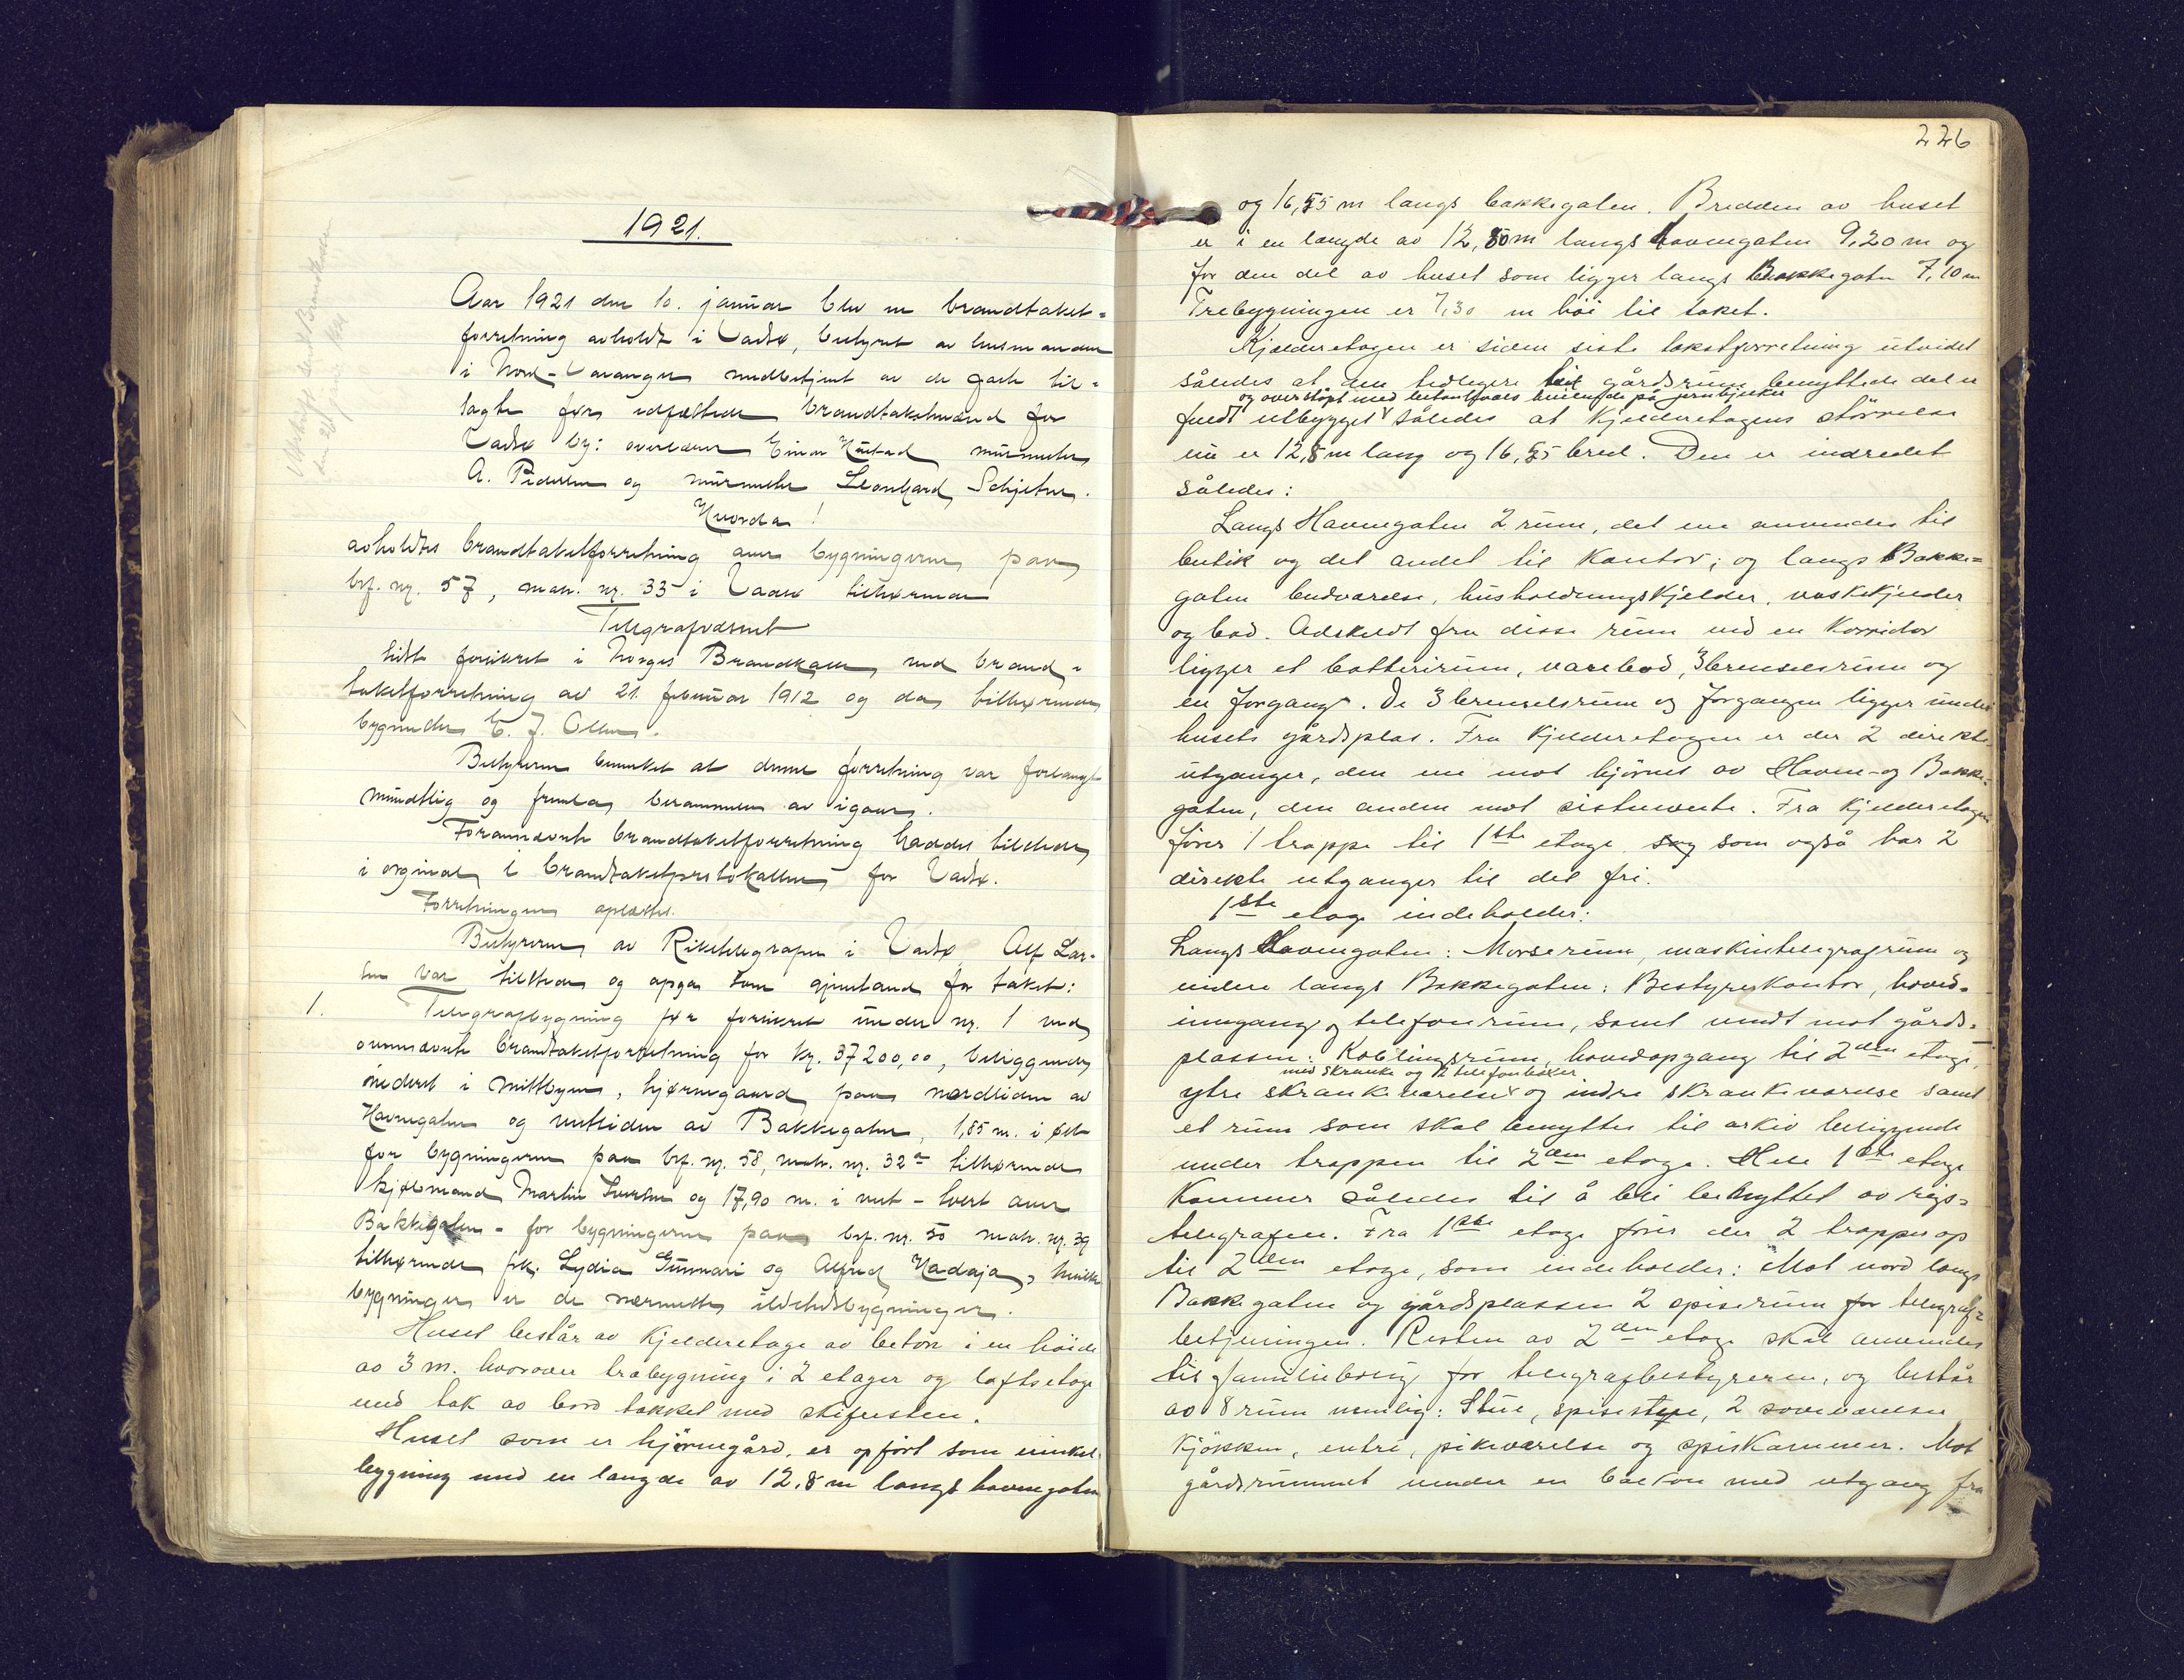 1921.
Aar 1921 den 10. januar blev en brandtakst=
forretning avholdt i Vadsø, bestyret av lensmanden
i Nord-Varanger medbetjent av de faste til=
lagte førs edfæstede brandtakstmænd for
Vadsø by: overlærer Einar Hustad murmester
A. Pedersen og murmester Leonhard Schjetne.
Hvorda!
avholdtes brandtakstforretning over bygningerne paa
brf. nr. 57, matr. nr. 33 i Vadsø tilhørende
Telegrafvæsenet
sidst forsikret i Norges Brandkasse ved brand=
takstforretning av 21. februar 1912 og da tilhørende
bygmester E. J. Olsen.
Bestyreren bemerket at denne forretning var forlangt
mundtlig og fremla berammelse av igaar.
Forannævnte brandtakstforretning haddes tilstede
i original i brandtakstprotokollen for Vadsø.
Forretningen oplæstes.
Bestyreren av Rikstelegrafen i Vadsø Alf Lar=
sen var tilstede og opga som gjenstand for takst:
1. Telegrafbygning før forsikret under nr. 1 ved
ovennævnte brandtakstforretning for kr. 37200,00, beliggende
nederst i midtbyen, hjørnegaard paa nordsiden av
Havnegaten og vestsiden av Bakkegaten, 1,85 m. i øst
for bygningerne paa brf. nr. 58, matr. nr. 32a tilhørende
kjøbmand Martin Iversen og 17,90 m. i vest - tvert over
Bakkegaten - for bygningerne paa brf. nr. 50 matr. nr. 39
tilhørende frk. Lydia Gunnari og Alfred Hadaja, hvilke
bygninger er de nærmeste ildstedsbygninger.
Huset består av kjelderetage av beton i en höide
av 3 m. hvorover træbygning i 2 etager og loftsetage
med tak av bord tækket med skifersten.
Huset som er hjörnegård, er opfört som vinkel
bygning med en længde av 12,8 m langs havnegaten
226
og 16,55 m langs bakkegaten. Bredden av huset
er i en længde av 12,80 m langs havnegaten 9,20 m og
for den del av huset som ligger langs Bakkegaten 7,10 m
Trebygningen er 7,30 m höi til taket.
Kjælderetagen er siden siste takstforretning utvidet
således at den tidligere til gårdsrum benyttede del er
og overstöpt med betonhvælv hvilende på jernbjelker
fuldt utbygget således at kjelderetagens störrelse
nu er 12,8 m lang og 16,55 bred. Den er indredet
således:
Langs Havnegaten 2 rum, det ene anvendes til
butik og det andet til kontor; og langs Bakke=
gaten budværelse, husholdningskjelder, vaskekjelder
og bod. Adskildt fra disse rum ved en korridor
ligger et batterirum, varebod, 3 brenselsrum og
en forgang. De 3 brenselsrum og forgangen ligger under
husets gårdsplas. Fra kjelderetagen er der 2 direkte
utganger, den ene mot hjörnet av Havne- og Bakke-
gaten, den anden mot sistnevnte. Fra kjelderetagen
förer 1 trappe til 1ste etage, som også har 2
direkte utganger til det fri.
1ste etage indeholder:
Langs Havnegaten: Morserum, maskintelegrafrum og
videre langs Bakkegaten: Bestyrerkontor, hoved=
inngang og telefonrum, samt vendt mot gårds=
plassen: Koblingsrum, hovedopgang til 2den etage,
med skranke og 2 telefonbokser
ytre skrankeværelse og indre skrankeværelse samt
et rum som skal benyttes til arkiv beliggende
under trappen til 2den etage. Hele 1ste etage
kommer således til å bli benyttet av rigs=
telegrafen. Fra 1ste etage förer der 2 trapper op
til 2den etage, som indeholder: Mot nord langs
Bakkegaten og gårdsplassen 2 spiserum for telegraf=
betjeningen. Resten av 2den etage skal anvendes
til familiebolig for telegrafbestyreren, og består
av 8 rum nemlig: Stue, spisestue, 2 soveværelser
kjökken, entré, pikeværelse og spiskammer. Mot
gårdsrummet vender en balkon med utgang fra